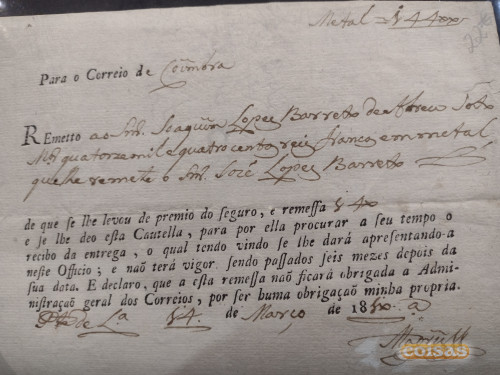 Metal
Para o Correio de Coimbra
REmetto ao Snr. Joaquim Lopez Barreto de Abreu
quatorze mil e quatro centos reis francos em metal
que lhe remete o Snr. José Lopez Barreto
de que se lhe levou de premio do seguro, e remessa
e se lhe deo esta Cautella, para por ella procurar a seu tempo o
recibo da entrega, o qual tendo vindo se lhe dará apresentando-a
neste Officio; e naõ terá vigor sendo passados seis mezes depois da
sua data. E declaro, que a esta remessa naõ ficará obrigada a Admi-
nistraçaõ geral dos Correios, por ser huma obrigaçaõ minha propria.
de Março de 18
coisas